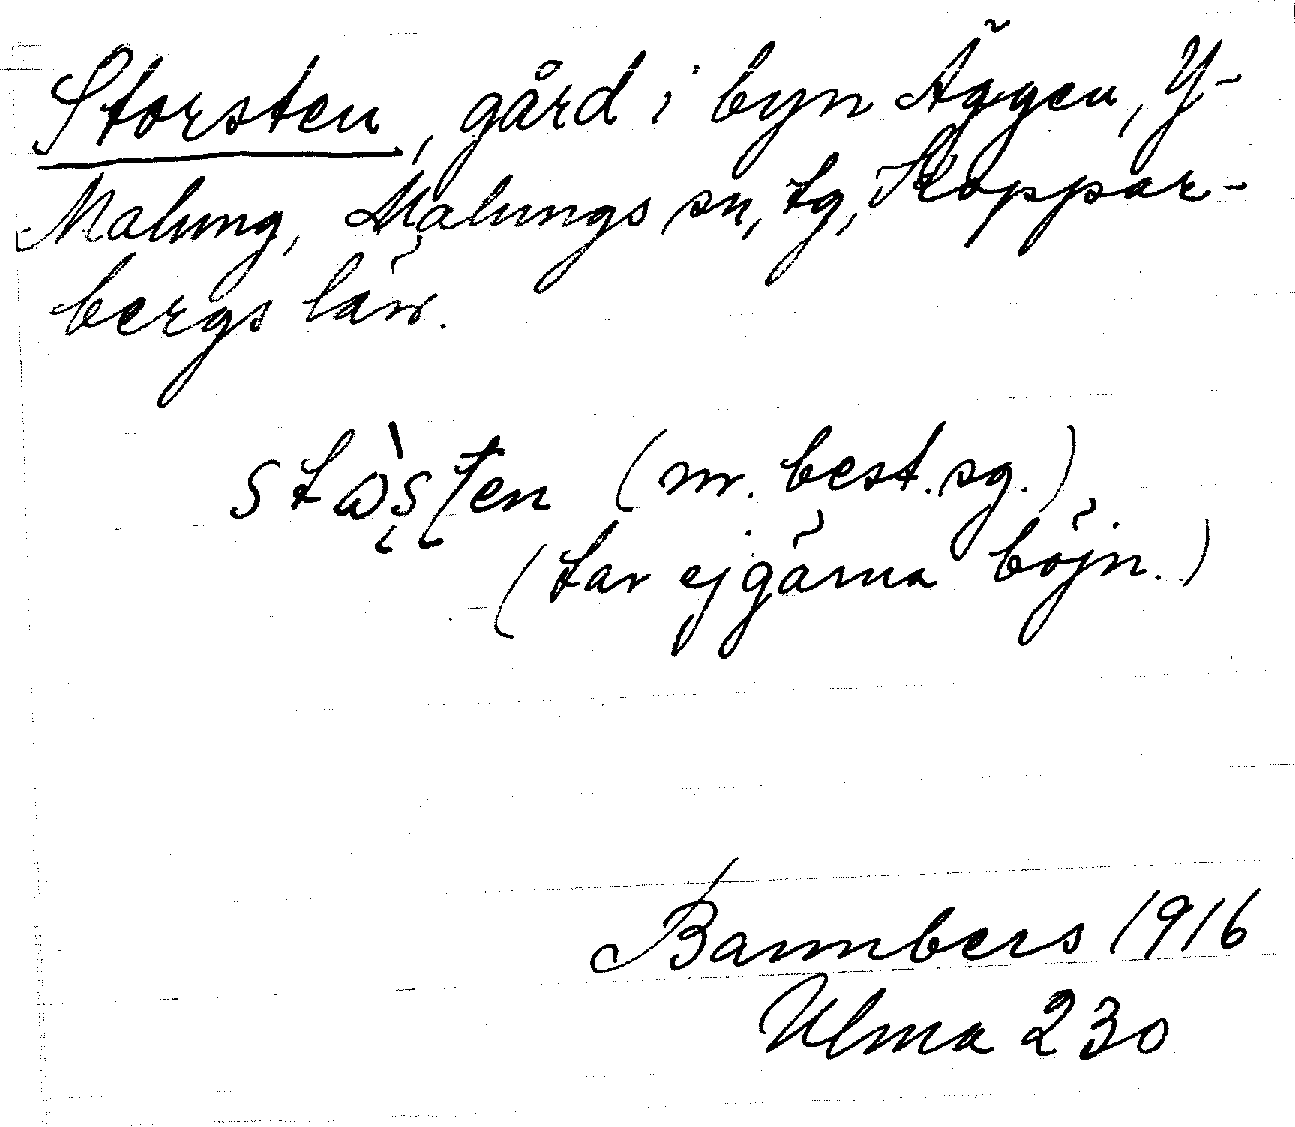 Storsten, gård i byn Äggen, Y-
Malung, Malungs sn, tg, Koppar-
bergs län.
stɷ̀ʂʈen (m. best. sg.)
(tar ej gärna böjn.)
Bannbers 1916
Ulma 230